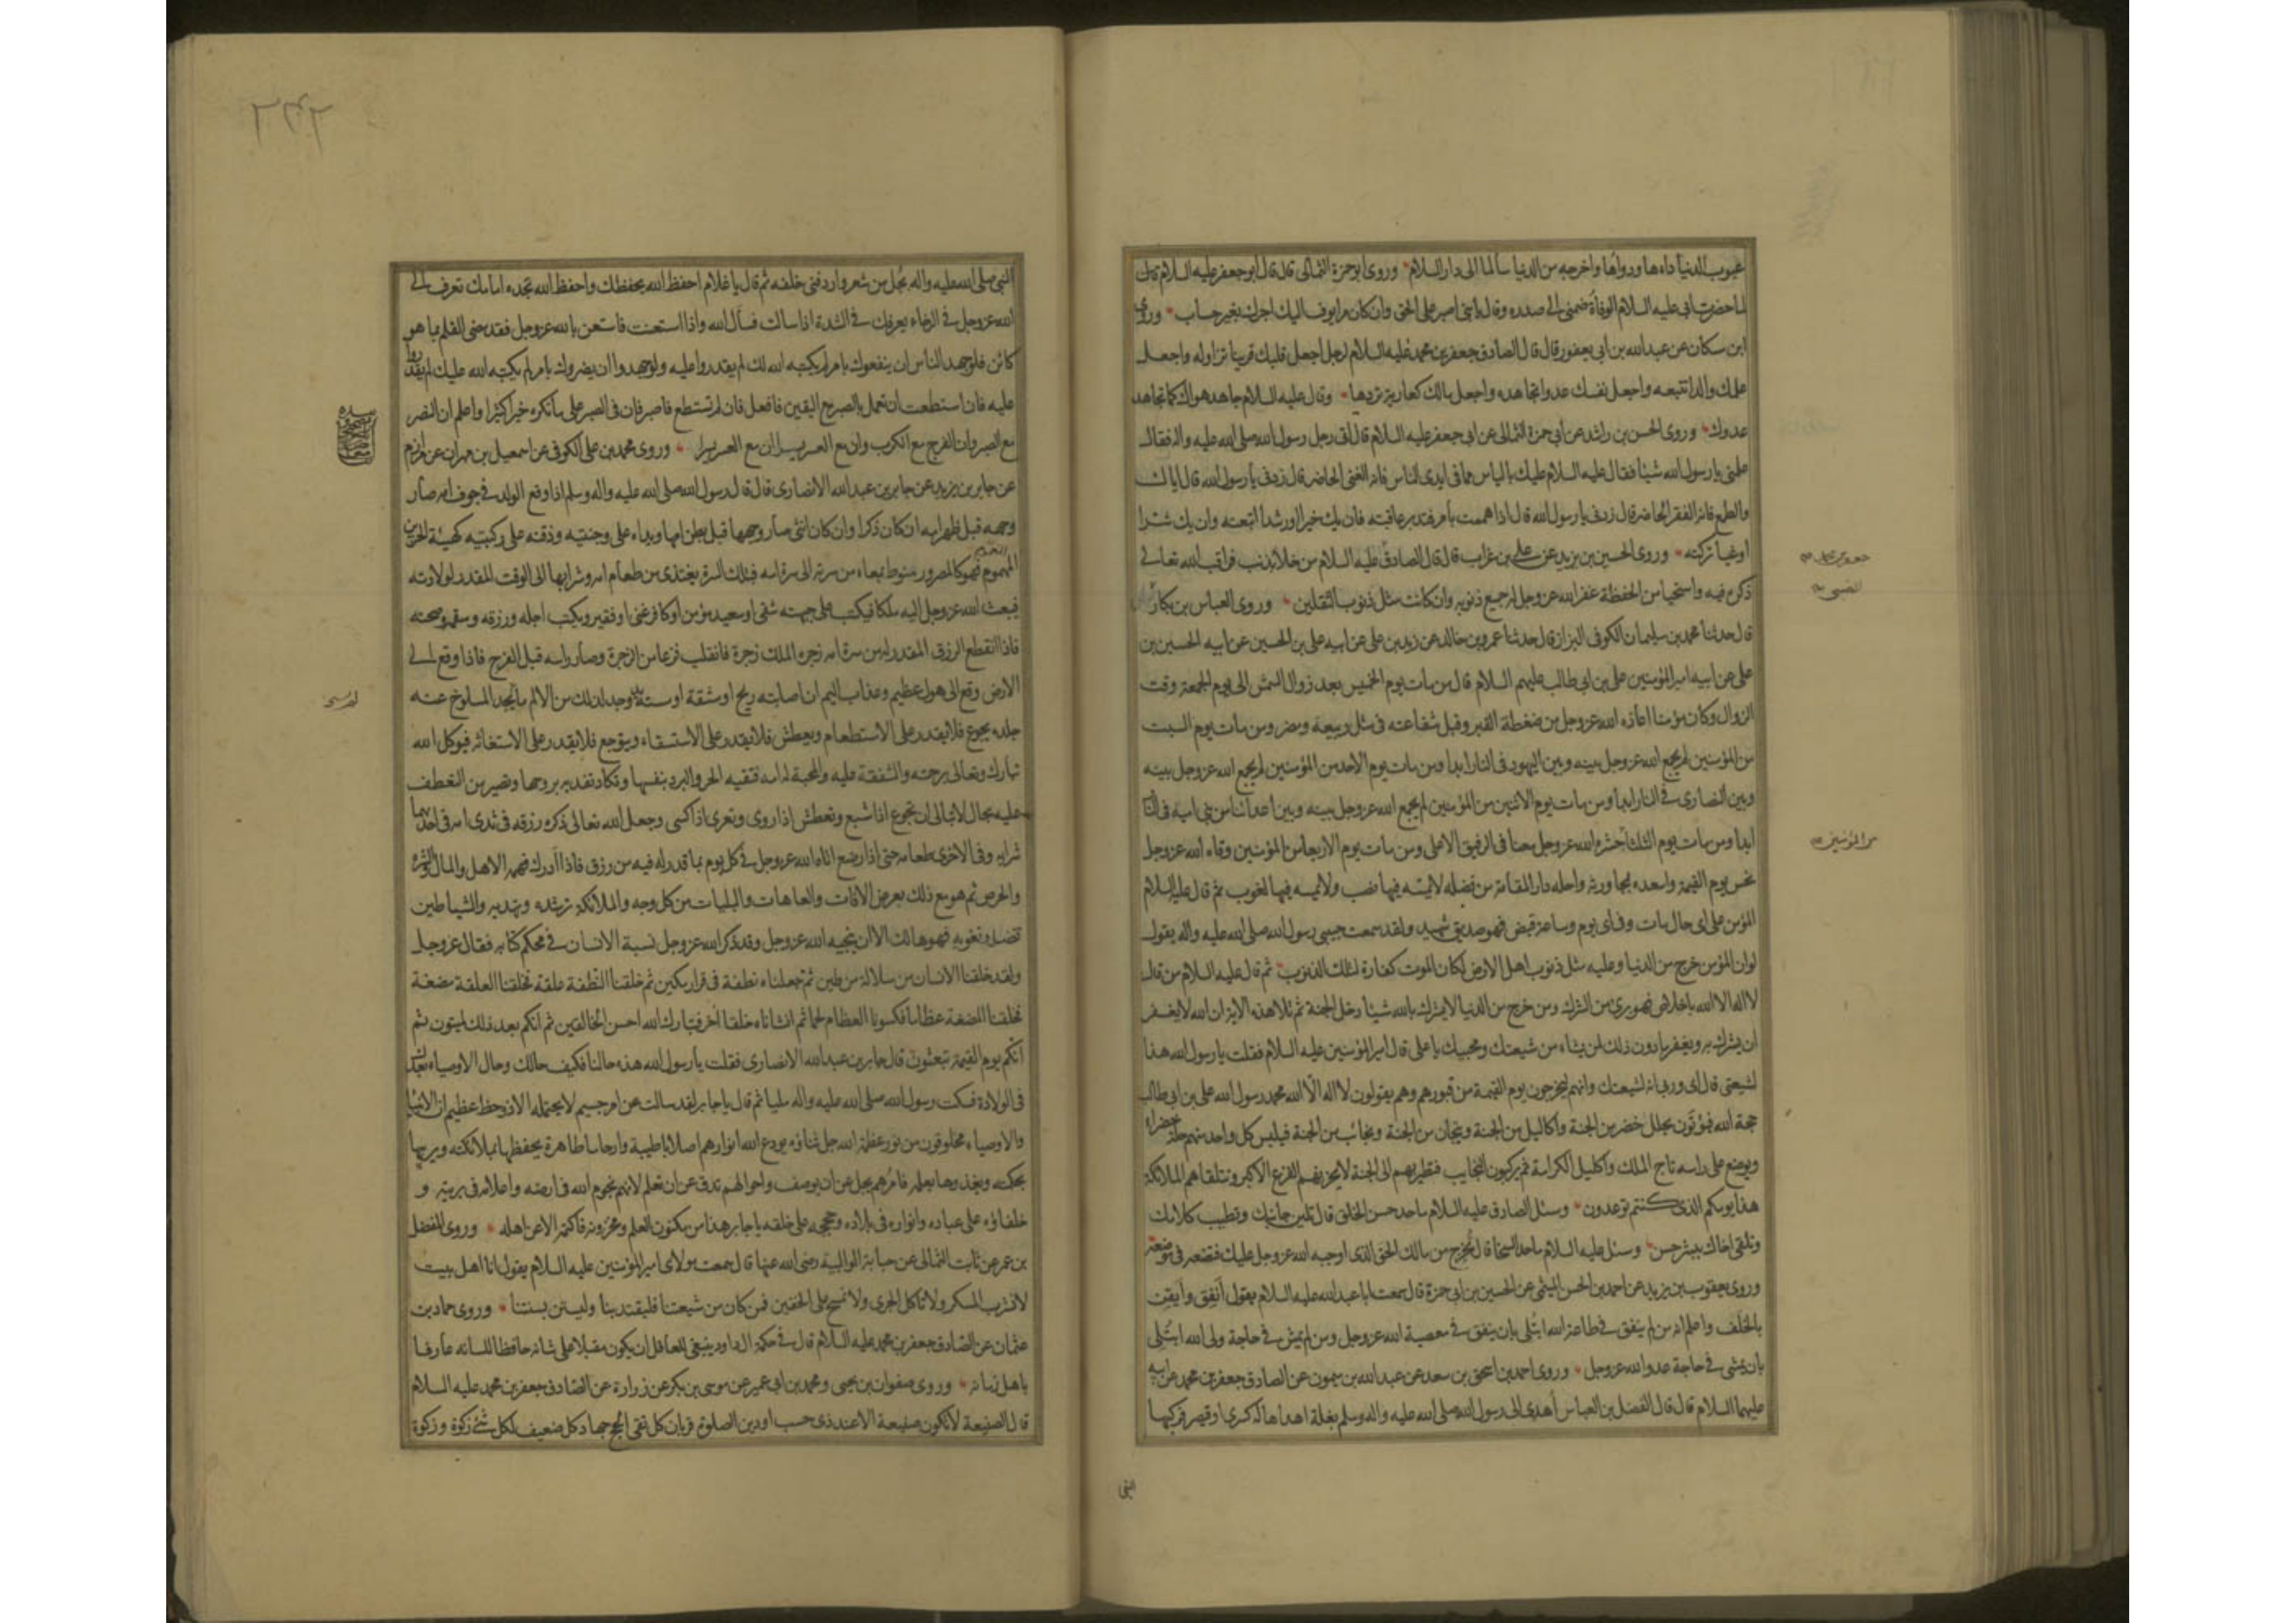 عيوب الدنيا داءها ودواءها واخرجه من الدنيا سالما الى دار السلام وروى ابو حمزة الثمالى قال قال ابو جعفر عليه السلام
لما حضرت ابى عليه السلام الوفاة ضمنى الى صدره وقال يا بنى اصبر على الحق وان كان مرا يوف اليك اجرك بغير حساب وروى
ابن مسكان عن عبد الله بن ابى يعفور قال قال الصادق جعفر بن محمد عليه السلام لرجل اجعل قلبك قرينا تزاوله واجعل
علمك والدا تتبعه واجعل نفسك عدوا تجاهده واجعل مالك كعارية تردها وقال عليه السلام جاهد هواك كما تجاهد
عدوك وروى الحسن بن راشد عن ابى حمزة الثمالى عن ابى جعفر عليه السلام قال اتى رجل رسول الله صلى الله عليه واله فقال
علمنى يا رسول الله شيئا فقال عليه السلام عليك بالياس مما فى ايدى الناس فانه الغنى الحاضر قال زدنى يا رسول الله قال اياك
والطمع فانه الفقر الحاضر قال زدنى يا رسول الله قال اذا هممت بامر فتدبر عاقبته فان يك خيرا او رشدا اتبعته وان يك شرا
او غيا تركته وروى الحسين بن يزيد عن على بن غراب قال قال الصادق عليه السلام من خلا بذنب فراقب الله تعالى
ذكره فيه واستحيا من الحفظة غفر الله عز وجل له جميع ذنوبه وان كانت مثل ذنوب الثقلين وروى العباس بن بكار
قال حدثنا محمد بن سليمان الكوفى البزاز قال حدثنا عمرو بن خالد عن زيد بن على عن ابيه على بن الحسين عن ابيه الحسين بن
على عن ابيه امير المؤمنين على بن ابى طالب عليهم السلام قال من مات يوم الخميس بعد زوال الشمس الى يوم الجمعة وقت
الزوال وكان مؤمنا اعاذه الله عز وجل من ضغطة القبر وقبل شفاعته فى مثل ربيعة ومضر ومن مات يوم السبت
من المؤمنين لم يجمع الله عز وجل بينه وبين اليهود فى النار ابدا ومن مات يوم الاحد من المؤمنين لم يجمع الله عز وجل بينه
وبين النصارى فى النار ابدا ومن مات يوم الاثنين من المؤمنين لم يجمع الله عز وجل بينه وبين اعدائنا من بنى امية فى النار
ابدا ومن مات يوم الثلثا حشره الله عز وجل معنا فى الرفيق الاعلى ومن مات يوم الاربعا من المؤمنين وقاه الله عز وجل
نحس يوم القيمة واسعده بمجاورته واحله دار المقامة من فضله لا يمسه فيها نصب ولا يمسه فيها لغوب ثم قال عليه السلام
المؤمن على اى حال مات وفى اى يوم وساعة قبض فهو صديق شهيد ولقد سمعت حبيبى رسول الله صلى الله عليه واله يقول
لو ان المؤمن خرج من الدنيا وعليه مثل ذنوب اهل الارض لكان الموت كفارة لتلك الذنوب ثم قال عليه السلام من قال
لا اله الا الله باخلاص فهو برئ من الشرك ومن خرج من الدنيا لا يشرك بالله شيئا دخل الجنة ثم تلا هذه الاية ان الله لا يغفر
ان يشرك به ويغفر ما دون ذلك لمن يشاء من شيعتك ومحبيك يا على قال امير المؤمنين عليه السلام فقلت يا رسول الله هذا
لشيعتى قال اى وربى انه لشيعتك وانهم ليخرجون يوم القيمة من قبورهم وهم يقولون لا اله الا الله محمد رسول الله على بن ابى طالب
حجة الله فيؤتون بحلل خضر من الجنة واكاليل من الجنة وتيجان من الجنة ونجائب من الجنة فيلبس كل واحد منهم حلة خضراء
ويوضع على راسه تاج الملك واكليل الكرامة ثم يركبون النجايب فتطير بهم الى الجنة لا يحزنهم الفزع الاكبر وتتلقاهم الملائكة
هذا يومكم الذى كنتم توعدون وسئل الصادق عليه السلام ما حد حسن الخلق قال تلين جانبك وتطيب كلامك
وتلقى اخاك ببشر حسن وسئل عليه السلام ما حد السخا قال تخرج من مالك الحق الذى اوجبه الله عز وجل عليك فتضعه فى موضعه
وروى يعقوب بن يزيد عن احمد بن الحسن الميثمى عن الحسين بن ابى حمزة قال سمعت ابا عبد الله عليه السلام يقول انفق وايقن
بالخلف واعلم انه من لم ينفق فى طاعة الله ابتلى بان ينفق فى معصية الله عز وجل ومن لم يمش فى حاجة ولى الله ابتلى
بان يمشى فى حاجة عدو الله عز وجل وروى احمد بن اسحق بن سعد عن عبد الله بن ميمون عن الصادق جعفر بن محمد عن ابيه
عليهما السلام قال قال الفضل بن العباس أهدى الى رسول الله صلى الله عليه واله وسلم بغلة اهداها له كسرى او قيصر فركبها
النبى
من المؤمنين
النبى صلى الله عليه واله بجل من شعر واردفنى خلفه ثم قال يا غلام احفظ الله يحفظك واحفظ الله تجده امامك تعرف الى
الله عز وجل فى الرخاء يعرفك فى الشدة اذا سالت فسأل الله واذا استعنت فاستعن بالله عز وجل فقد مضى القلم بما هو
كائن فلو جهد الناس ان ينفعوك بامر لم يكتبه الله لك لم يقدروا عليه ولو جهدوا ان يضروك بامر لم يكتبه الله عليك لم يقدروا
عليه فان استطعت ان تعمل بالصبر مع اليقين فافعل فان لم تستطع فاصبر فان فى الصبر على ما تكره خيرا كثيرا واعلم ان النصر
مع الصبر وان الفرج مع الكرب وان مع العسر يسرا ان مع العسر يسرا وروى محمد بن على الكوفى عن اسمعيل بن مهران عن مرازم
عن جابر بن يزيد عن جابر بن عبد الله الانصارى قال قال رسول الله صلى الله عليه واله وسلم اذا وقع الولد فى جوف امه صار
وجهه قبل ظهر امه ان كان ذكرا وان كان انثى صار وجهها قبل بطن امها ويداه على وجنتيه وذقنه على ركبتيه كهيئة الحزين
المهموم فهو كالمصرور منوط بمعاء من سرته الى سرة امه فبتلك السرة يغتذى من طعام امه وشرابها الى الوقت المقدر لولادته
فيبعث الله عز وجل اليه ملكا فيكتب على جبهته شقى او سعيد مؤمن او كافر غنى او فقير ويكتب اجله ورزقه وسقمه وصحته
فاذا انقطع الرزق المقدر له من سرة امه زجره الملك زجرة فانقلب فزعا من الزجرة وصار راسه قبل الفرج فاذا وقع الى
الارض وقع الى هول عظيم وعذاب اليم ان اصابته ريح او مشقة او مسته يد وجد لذلك من الالم ما يجد المسلوخ عنه
جلده يجوع فلا يقدر على الاستطعام ويعطش فلا يقدر على الاستسقاء ويتوجع فلا يقدر على الاستغاثه فيوكل الله
تبارك وتعالى برحمته والشفقة عليه والمحبة له امه فتقيه الحر والبرد بنفسها وتكاد تفديه بروحها وتصير من التعطف
عليه بحال لا تبالى ان تجوع اذا شبع وتعطش اذا روى وتعرى اذا كسى وجعل الله تعالى ذكره رزقه فى ثدى امه فى احديهما
شرابه وفى الاخرى طعامه حتى اذا رضع اتاه الله عز وجل فى كل يوم بما قدر له فيه من رزق فاذا ادرك فهمه الاهل والمال والشره
والحرص ثم هو مع ذلك بعرض الافات والعاهات والبليات من كل وجه والملائكة ترشده وتهديه والشياطين
تضله وتغويه فهو هالك الا ان ينجيه الله عز وجل وقد ذكر الله عز وجل نسبة الانسان فى محكم كتابه فقال عز وجل
ولقد خلقنا الانسان من سلالة من طين ثم جعلناه نطفة فى قرار مكين ثم خلقنا النطفة علقة فخلقنا العلقة مضغة
فخلقنا المضغة عظاما فكسونا العظام لحما ثم انشاناه خلقا اخر فتبارك الله احسن الخالقين ثم انكم بعد ذلك لميتون ثم
انكم يوم القيمة تبعثون قال جابر بن عبد الله الانصارى فقلت يا رسول الله هذه حالنا فكيف حالك وحال الاوصياء بعدك
فى الولادة فسكت رسول الله صلى الله عليه واله مليا ثم قال يا جابر لقد سالت عن امر جسيم لا يحتمله الا ذو حظ عظيم ان الانبياء
والاوصياء مخلوقون من نور عظمة الله جل ثناؤه يودع الله انوارهم اصلابا طيبة وارحاما طاهرة يحفظها بملائكته ويربيها
بحكمته ويغذوها بعلمه فامرهم يجل عن ان يوصف واحوالهم تدق عن ان تعلم لانهم نجوم الله فى ارضه واعلامه فى بريته و
خلفاؤه على عباده وانواره فى بلاده وحججه على خلقه يا جابر هذا من مكنون العلم ومخزونه فاكتمه الا عن اهله وروى المفضل
بن عمر عن ثابت الثمالى عن حبابة الوالبية رضى الله عنها قال سمعت مولاى امير المؤمنين عليه السلام يقول انا اهل بيت
لا نشرب المسكر ولا ناكل الجرى ولا نمسح على الخفين فمن كان من شيعتنا فليقتد بنا وليستن بسنتنا وروى حماد بن
عثمان عن الصادق جعفر بن محمد عليه السلام قال فى حكمة ال داود ينبغى للعاقل ان يكون مقبلا على شانه حافظا للسانه عارفا
باهل زمانه وروى صفوان بن يحيى ومحمد بن ابى عمير عن موسى بن بكر عن زرارة عن الصادق جعفر بن محمد عليه السلام
قال الصنيعة لا تكون صنيعة الا عند ذى حسب او دين الصلوة قربان كل تقى الحج جهاد كل ضعيف لكل شئ زكوة وزكوة